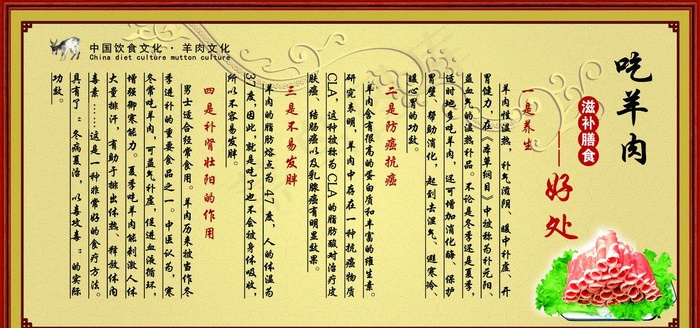 中国饮食文化·羊肉文化
China diet culture mutton culture
吃羊肉
滋补膳食
——好处
一是养生
羊肉性温热，补气滋阴、暖中补虚、开
胃健力，在《本草纲目》中被称为补元阳
益血气的温热补品。不论是冬季还是夏季，
适时地多吃羊肉，还可增加消化酶、保护
胃壁，帮助消化，起到去湿气、避寒冷、
暖心胃的功效。
二是防癌抗癌
羊肉含有很高的蛋白质和丰富的维生素。
研究表明，羊肉中存在一种抗癌物质
CLA，这种被称为CLA的脂肪酸对治疗皮
肤癌、结肠癌以及乳腺癌有明显效果。
三是不易发胖
羊肉的脂肪熔点为47度，人的体温为
37度，因此，就是吃了也不会被身体吸收，
所以不容易发胖。
四是补肾壮阳的作用
男士适合经常食用。羊肉历来被当作冬
季进补的重要食品之一。中医认为，寒
冬常吃羊肉，可益气补虚，促进血液循环，
增强御寒能力。夏季吃羊肉能刺激人体
大量排汗，有助于排出体热、释放体内
毒素……这是一种非常好的食疗方法。
具有了“冬病夏治，以毒攻毒”的实际
功效。